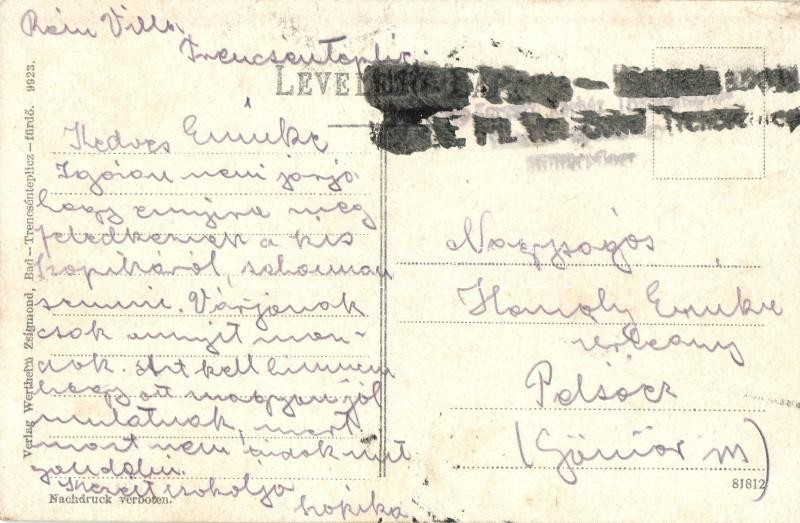 Rein Villa,
Trencsénteplic.
Kedves Emiuke
Igazán nem járja
hogy ennyire meg
feledkeznek a kis
Zsopikáról, sohannan
semmi. Várjanak
csak annyit mon-
dok. Azt kell hinnem
hogy ott nagyon jól
mulatnak, mert
most nem tudok mit
gondolni.
Szeret csókolja
Nagyságos
Hanoly Emuke
urleany
Pelsőcz
(Gömör m)
Verlag Wertheim Zsigmond, Bad—Trencsénteplicz—fürdő. 9923.
Nachdruck verboten.
81812